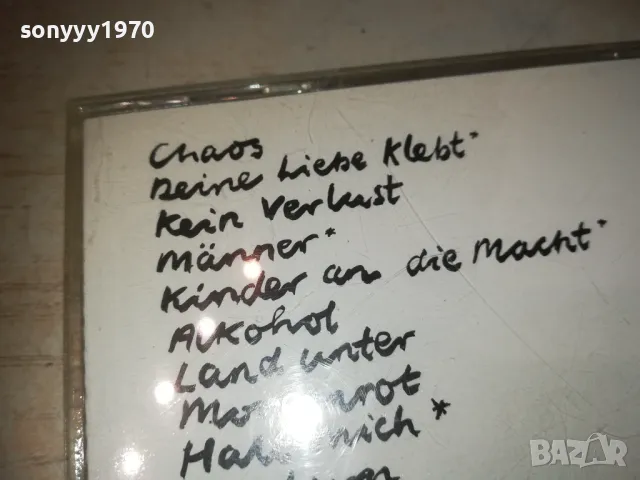 sonyyy1970
Chaos
Deine Liebe klebt*
Kein Verlust
Männer*
Kinder an die Macht*
Alkohol
Land unter
Morgenrot
Halt mich *
BAZAR
bg